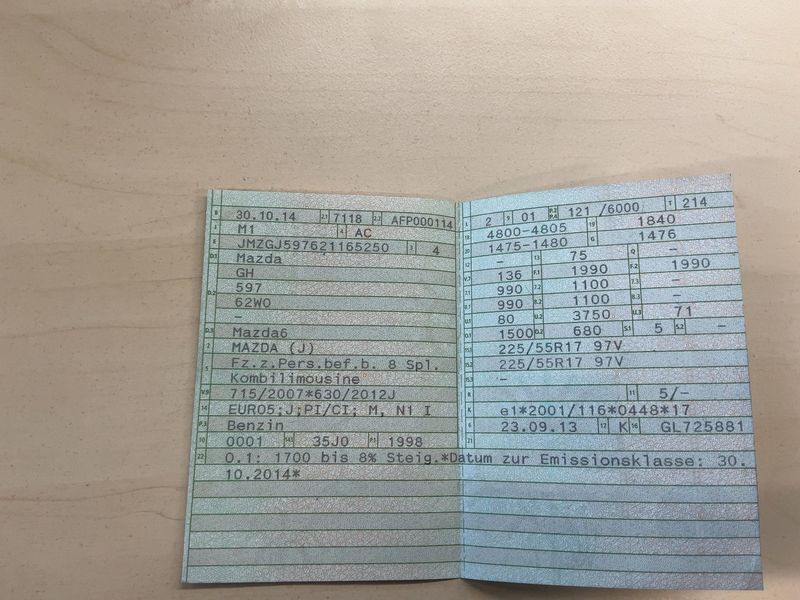 B 30.10.14 2.1 7118 2.2 AFP000114
J M1 4 AC
E JMZGJ597621165250 3 4
D.1 Mazda
GH
D.2 597
62W0
-
D.3 Mazda6
2 MAZDA (J)
5 Fz.z.Pers.bef.b. 8 Spl.
Kombilimousine
V.9 715/2007*630/2012J
14 EURO5;J;PI/CI; M, N1 I
P.3 Benzin
10 0001 14.1 35J0 P.1 1998
22 O.1: 1700 bis 8% Steig.*Datum zur Emissionsklasse: 30.
10.2014*
L 2 9 01 P.2 P.4 121 /6000 T 214
18 4800-4805 19 1840
20 1475-1480 G 1476
12 - 13 75 Q -
V.7 136 F.1 1990 F.2 1990
7.1 990 7.2 1100 7.3 -
8.1 990 8.2 1100 8.3 -
U.1 80 U.2 3750 U.3 71
O.1 1500 O.2 680 S.1 5 S.2 -
15.1 225/55R17 97V
15.2 225/55R17 97V
15.3 -
R 11 5/-
K e1*2001/116*0448*17
6 23.09.13 17 K 16 GL725881
21